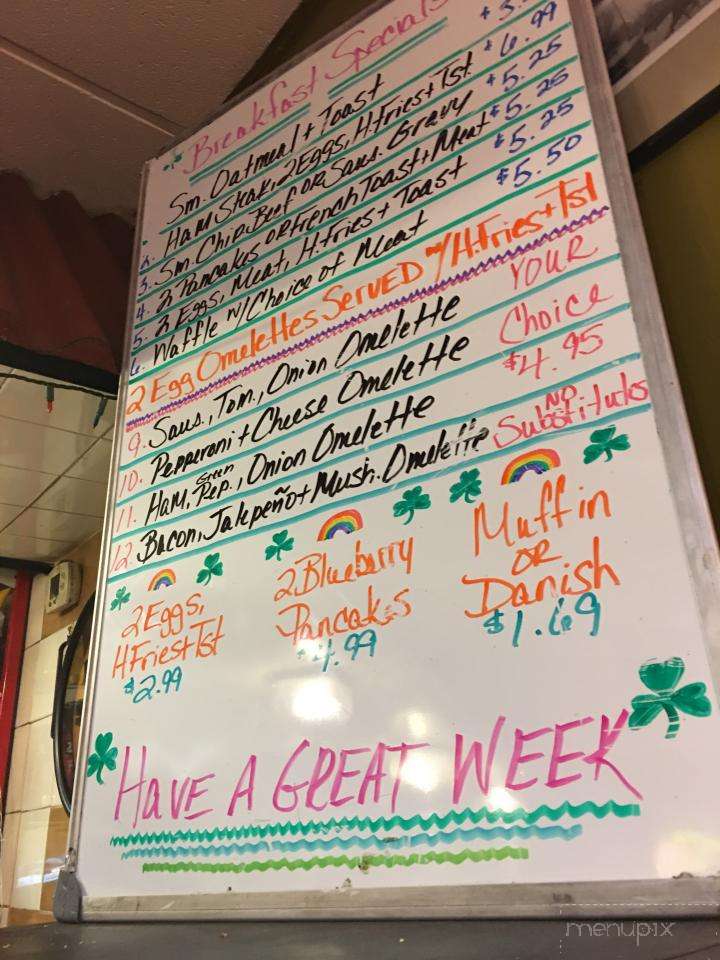 Breakfast Specials
Sm. Oatmeal + Toast $3.
2. Ham Steak, 2 Eggs, H.Fries + Tst. $6.99
3. Sm. Chip Beef OR Saus. Gravy $5.25
4. 2 Pancakes OR French Toast + Meat $5.25
5. 2 Eggs, Meat, H.Fries + Toast $5.25
6. Waffle w/Choice of Meat $5.50
2 Egg Omelettes SERVED w/H.Fries + Tst
9. Saus., Tom., Onion Omelette YOUR
10. Pepperoni + Cheese Omelette Choice
11. Ham, Green Pep., Onion Omelette $4.95
12. Bacon, Jalepeño + Mush. Omelette NO Substitutes
2 Eggs,
H Fries + Tst
$2.99
2 Blueberry
Pancakes
$4.99
Muffin
OR
Danish
$1.69
HAVE A GREAT WEEK
menupix